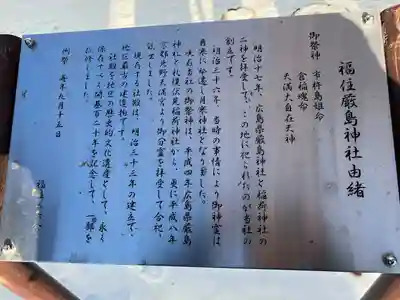 福住厳島神社由緒
御祭神 市杵島姫命
倉稲魂命
天満大自在天神
明治十七年、広島県厳島神社と稲荷神社の
二神を拝受して、この地に祀られたのが当社の
創立です。
明治三十六年、当時の事情により御神霊は
月寒に移遷し月寒神社となりました。
現在当社の御祭神は、平成四年広島県厳島
神社と札幌伏見稲荷神社から、更に平成八年
京都北野天満宮より御分霊を拝受して合祀、
創立しました。
現存する社殿は、明治三十三年の建立で、
地区最古の建造物です。
社殿を地区の歴史的文化遺産として、永く
保存すべく開基百二十年を記念して、一部を
改修しました。
例祭 毎年九月十五日
福住